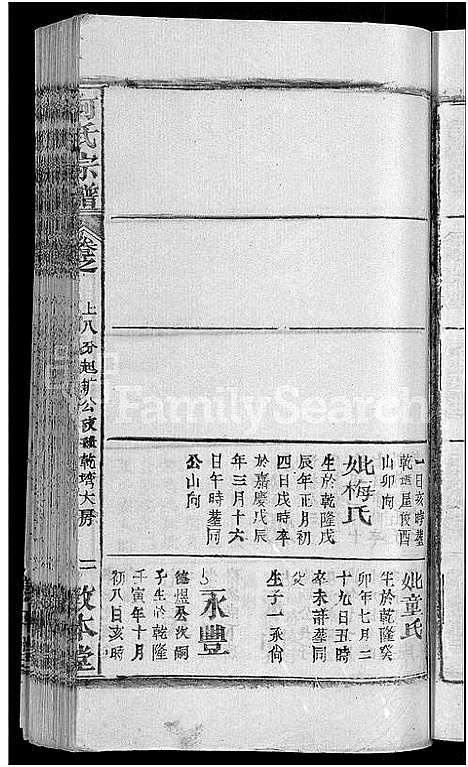 一日亥時葬
乾隆屋後酉
山卯向
妣梅氏
生於乾隆戊
辰年正月初
四日戌時卒
於嘉慶戊辰
年三月十六
日午時葬同
公山向
妣童氏
生於乾隆癸
卯年七月二
十九日丑時
卒未詳葬同
生子一承尚
永豐
德煜公次嗣
子生於乾隆
壬寅年十月
初八日亥時
何氏宗譜
卷之
上八分起新公支乾灣大房
一
敦本堂
FamilySearch